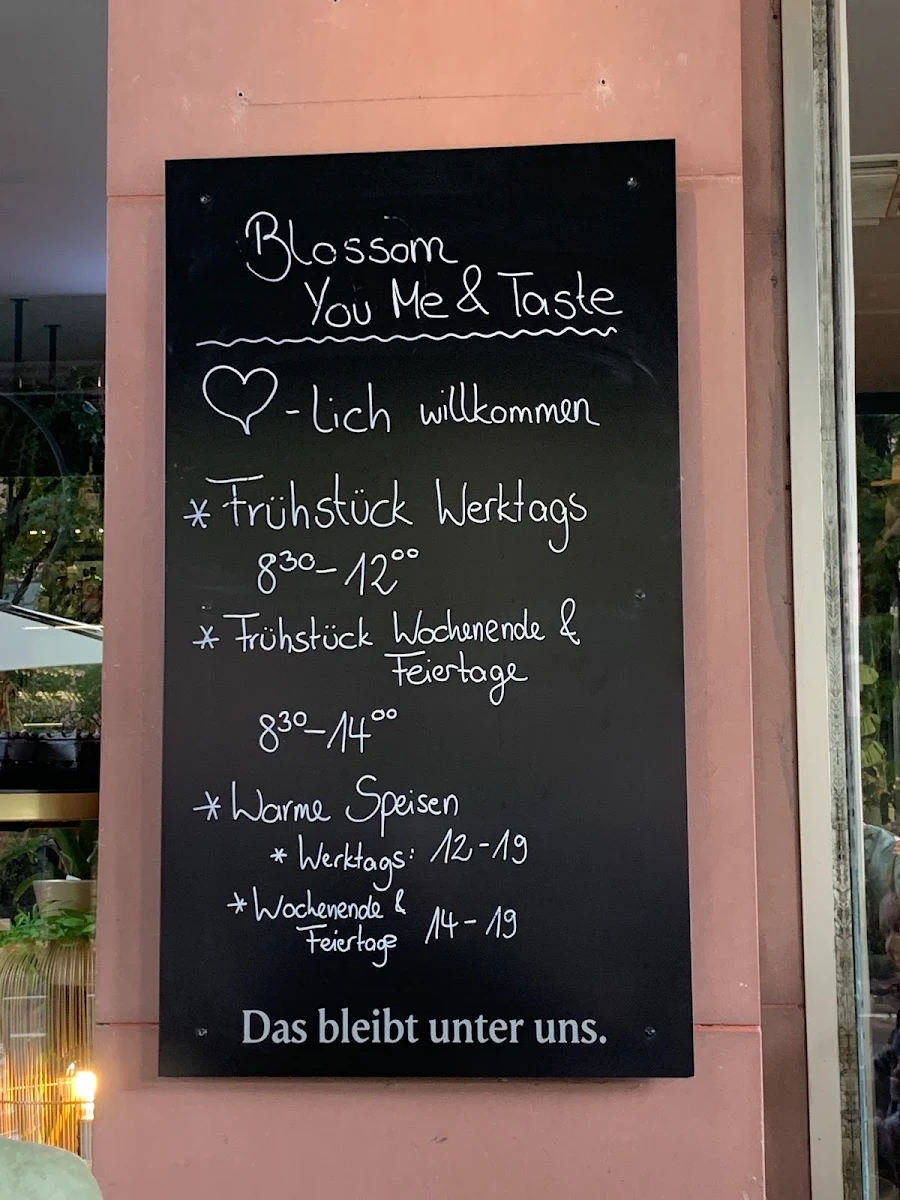 Blossom
You Me & Taste
♡-lich willkommen
* Frühstück Werktags
8³⁰-12⁰⁰
* Frühstück Wochenende &
Feiertage
8³⁰-14⁰⁰
* Warme Speisen
* Werktags: 12-19
* Wochenende &
Feiertage 14-19
Das bleibt unter uns.